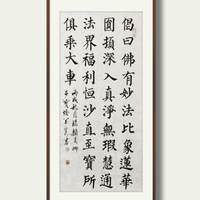 偈曰佛有妙法比象蓮華
圓頓深入真淨無瑕慧通
法界福利恒沙直至寶所
俱乘大車